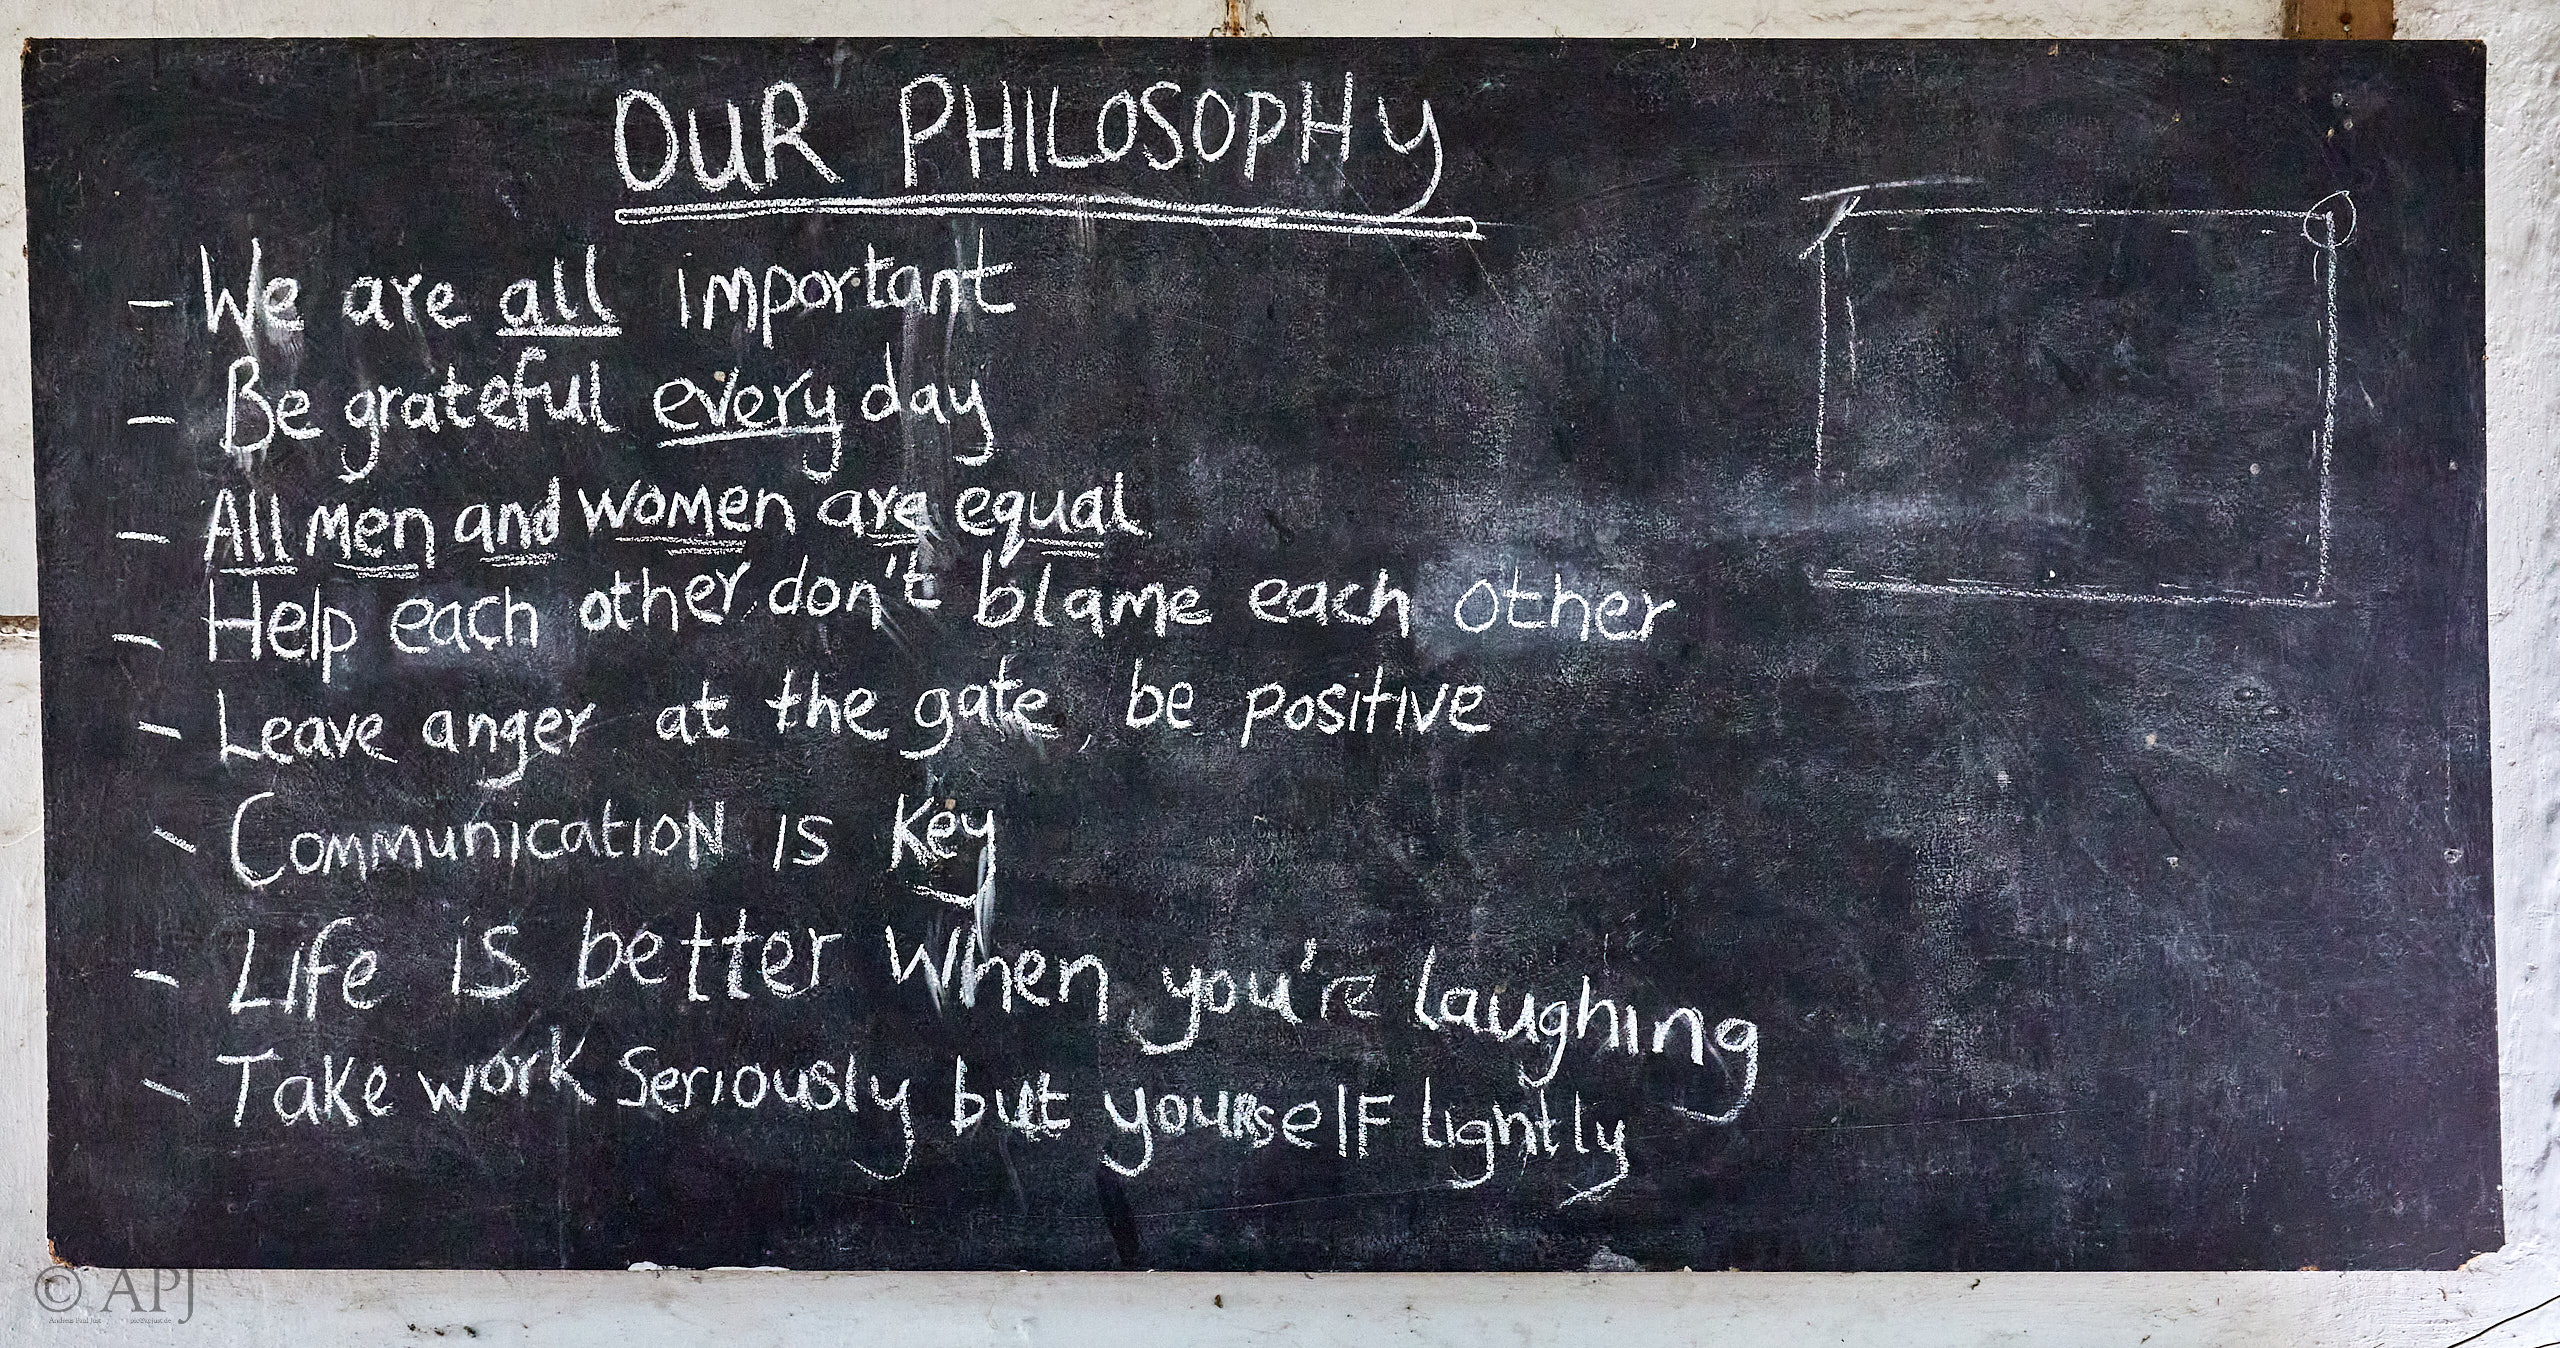 OUR PHILOSOPHY
- We are all important
- Be grateful every day
- All men and women are equal
- Help each other, don't blame each other
- Leave anger at the gate, be positive
- Communication is Key
- Life is better when you're laughing
- Take work seriously but yourself lightly
© APJ
Andreas Paul Just